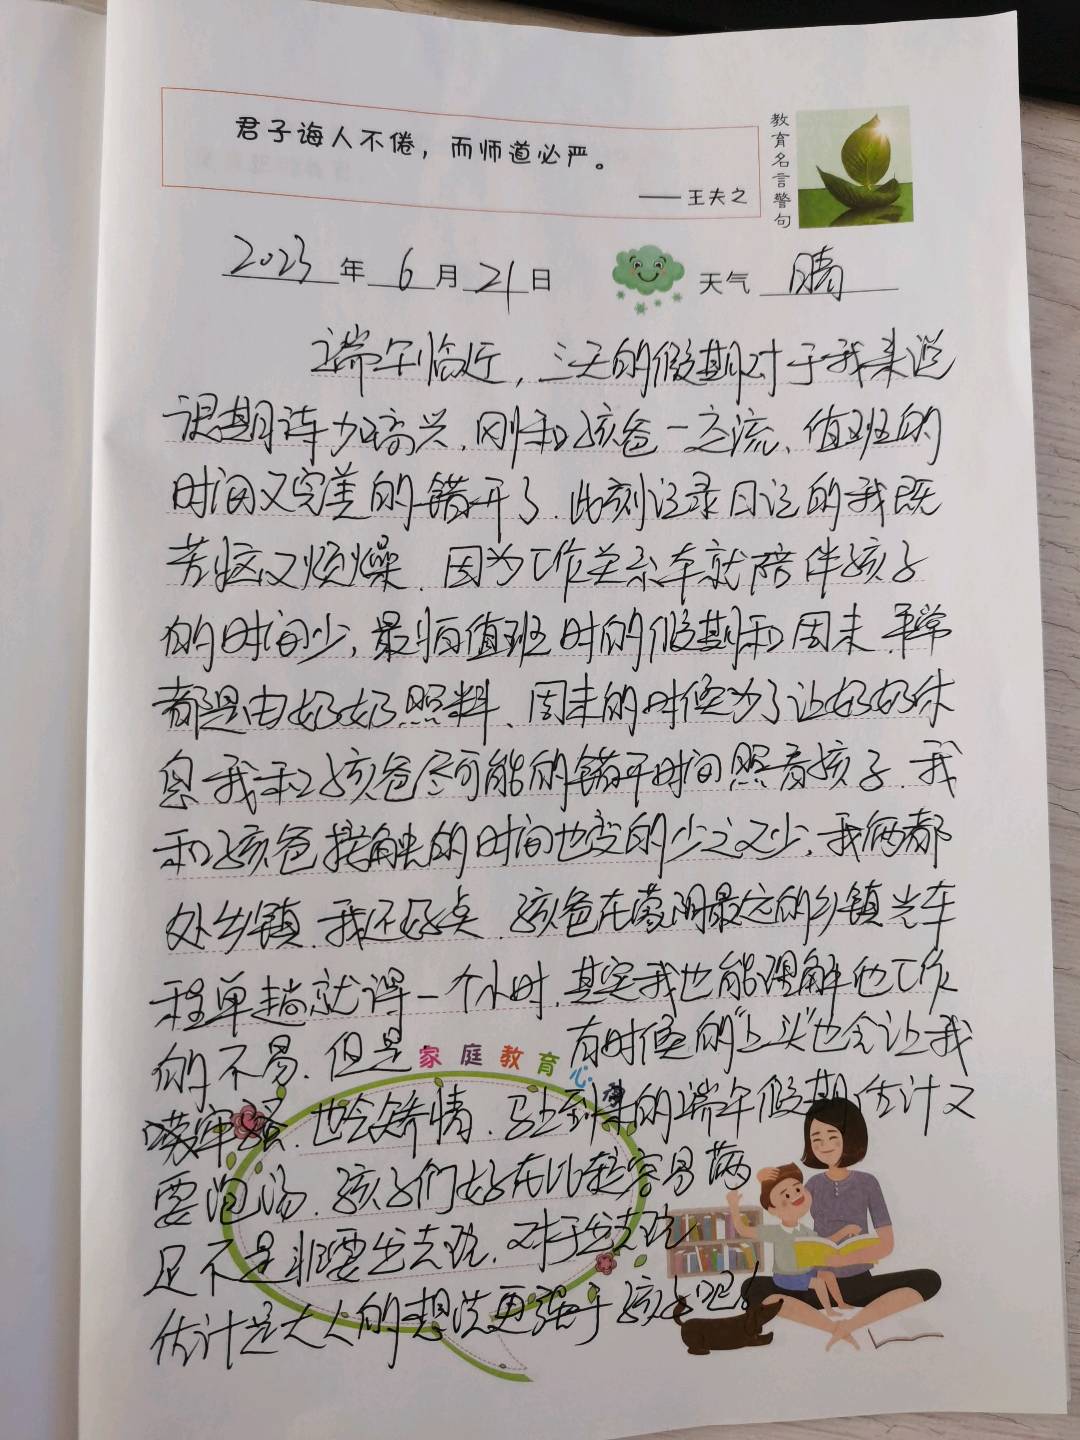 君子诲人不倦，而师道必严。
——王夫之
教育名言警句
2023年6月21日 天气 晴
端午临近，三天的假期对于我来说
没期许加高兴.刚和孩爸一交流、值班的
时间又完美的错开了.此刻记录日记的我既
苦恼又烦燥.因为工作关系本就陪伴孩子
的时间少，最怕值班时的假期和周末.平常
都是由奶奶照料、周末的时候为了让奶奶休
息我和孩爸尽可能的错开时间照看孩子.我
和孩爸接触的时间也变的少之又少.我俩都
处乡镇.我还好点.孩爸在蒙阴最远的乡镇光车
程单趟就得一个小时.其实我也能理解他工作
的不易.但是有时候的"上头"也会让我
家庭教育心得
发牢骚.也会矫情.马上到来的端午假期估计又
要泡汤.孩子们好在比较容易满
足不是非要出去玩.对于出去玩
估计是大人的想法更强于孩子吧！